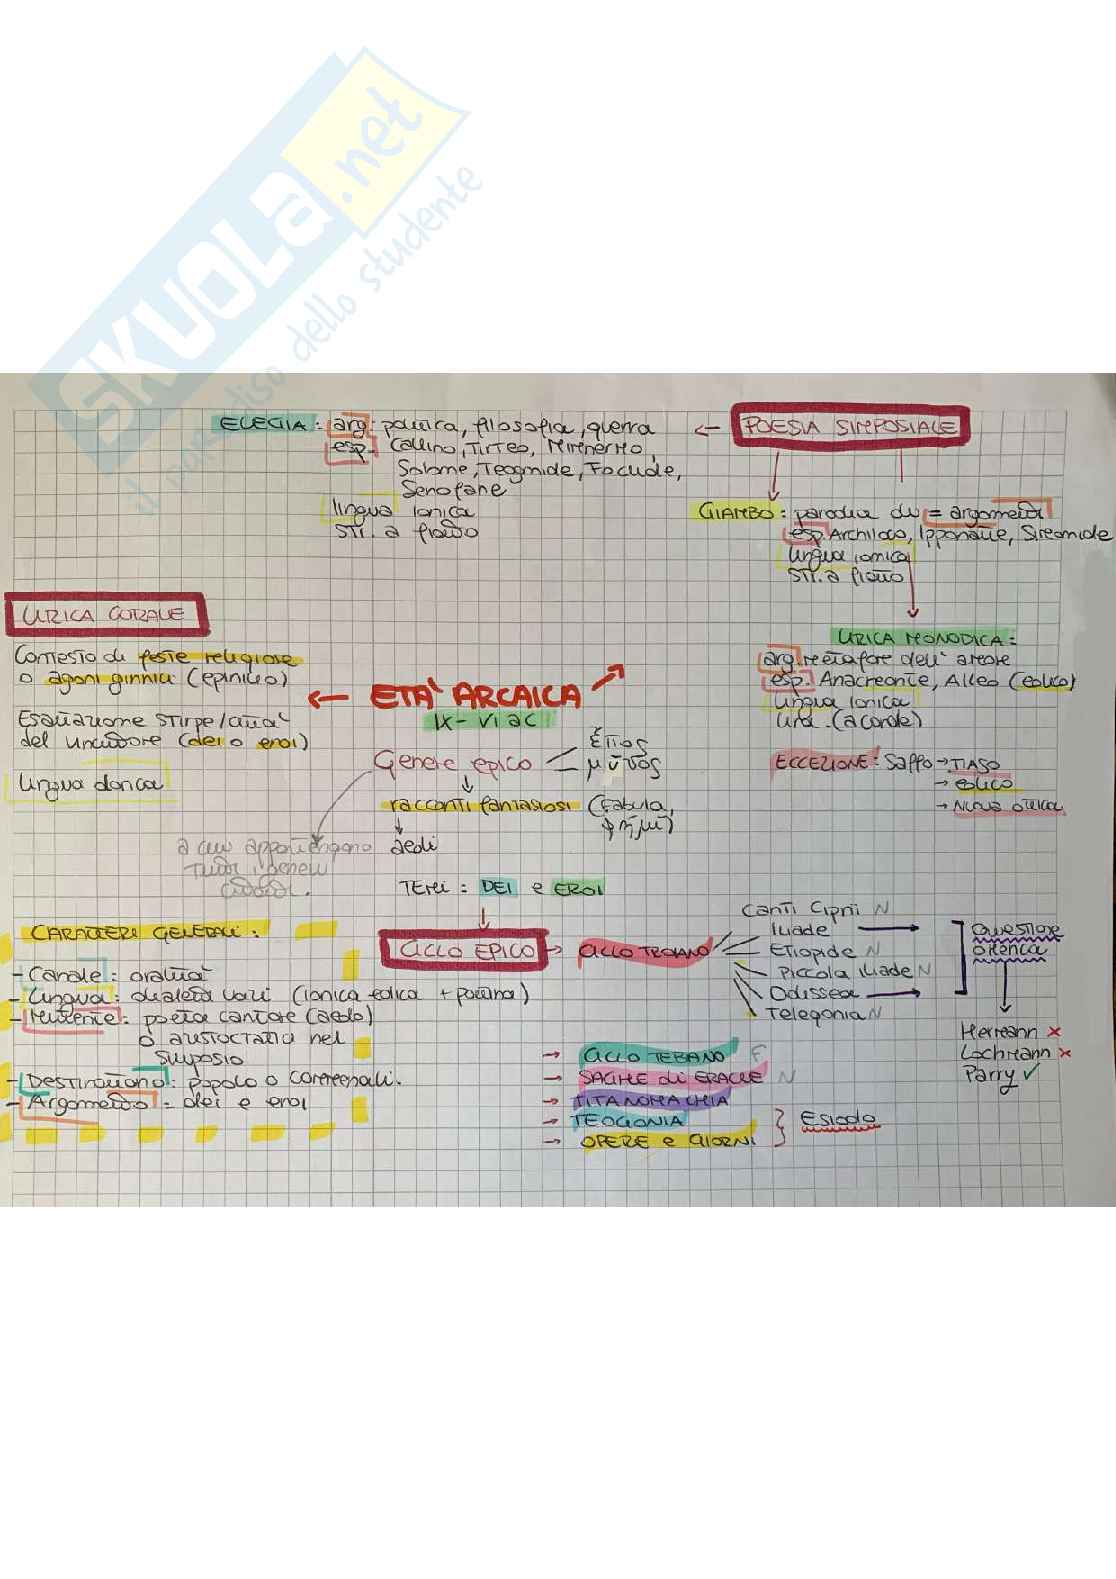 SKUOLa.net
il paradiso dello studente
ELEGIA: arg: politica, filosofia, guerra
esp. Callino, Tirteo, Mimnermo,
Solone, Teognide, Focilide,
Senofane
lingua ionica
STr. a fiato
← POESIA SIMPOSIALE
GIAMBO: parodia di = argomenti
esp. Archiloco, Ipponatte, Simonide
lingua ionica
STr. a fiato
LIRICA MONODICA:
arg. metafore dell' amore
esp. Anacreonte, Alceo (eolico)
lingua ionica
lira (a corde)
ECCEZIONE: Saffo → TIASO
→ eolico
→ NUOVA OTTICA
LIRICA CORALE
Contesto di feste religiose
o agoni ginnici (epinicio)
Esaltazione stirpe/città
del vincitore (dei o eroi)
lingua dorica
← ETA' ARCAICA
IX - VI aC
Genere epico
ἔπος
μῦθος
racconti fantasiosi (fabula,
φημί)
aedi
a cui appartengono
tutti i generi
TEMI: DEI e EROI
CICLO EPICO → CICLO TROIANO
Canti Cipri N
Iliade
Etiopide N
Piccola Iliade N
Odissea
Telegonia N
QUESTIONE
OMERICA
Hermann x
Lachmann x
Parry ✓
→ CICLO TEBANO F
→ SAGHE di ERACLE N
→ TITANOMACHIA
→ TEOGONIA
→ OPERE e GIORNI } Esiodo
CARATTERI GENERALI:
- Canale: oralità
- Lingua: dialetti vari (ionica eolica + patina)
- Mittente: poeta cantore (aedo)
o aristocratia nel
simposio
- Destinatario: popolo o commensali.
- Argomento: dei e eroi